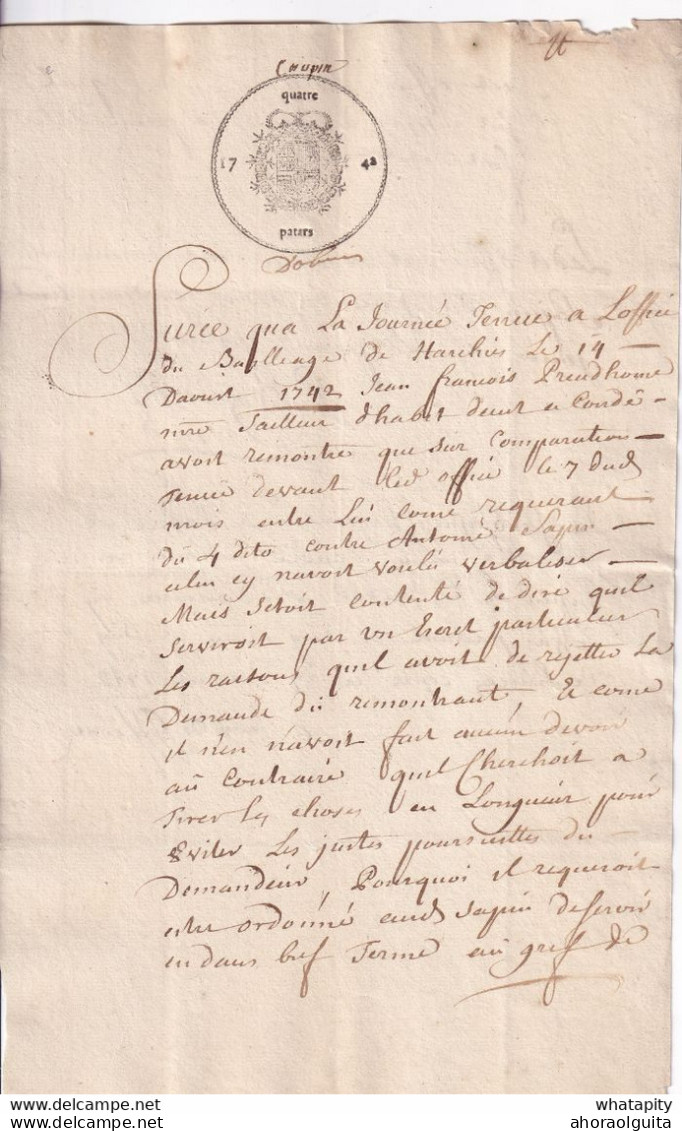 quatre
17 42
patars
Surce qua La Journée Tenue a Loffice
du Bailleage de Harchies Le 14 —
Daoust 1742 Jean francois Preudhome
mre Tailleur d'habit deut a Condé -
avoit remontré que sur Comparation —
Tenue devant led office le 7 dud
mois entre Lui come requerant
du 4 dito contre Antoine Sapin —
celui cy navoit voulu verbaliser —
Mais Setoit contenté de dire quil
Serviroit par un Escrit particulier
Les raisons quil avoit de rejetter La
Demande du remontrant, Et come
il n'en n'avoit fait aucun devoir
au Contraire quil Cherchoit a
Tirer les choses en Longueur pour
Eviter Les justes poursuittes du —
Demandeur, Pourquoi il requeroit
estre ordonné aud Sapin de servir
endans bref Terme au gref de
whatapity
ahoraolguita